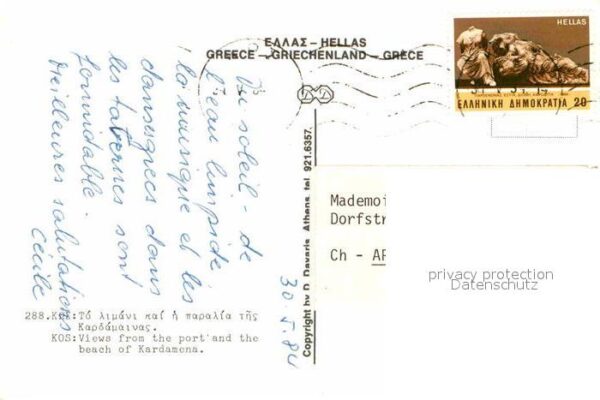 ΕΛΛΑΣ – HELLAS
GREECE – GRIECHENLAND – GRÈCE
HELLAS
ΕΛΛΗΝΙΚΗ ΔΗΜΟΚΡΑΤΙΑ 20
Du soleil - de
l'eau limpide
la musique et les
danses grecs dans
les tavernes sont
formidable.
Meilleures salutations
Cécile
30.5.84
Copyright by D. Davaris, Athens, tel. 921.6357.
Mademoi
Dorfstr
Ch - AP
privacy protection
Datenschutz
288.ΚΩΣ:Τό λιμάνι καί ἡ παραλία τῆς
Καρδάμαινας.
KOS:Views from the port and the
beach of Kardamena.